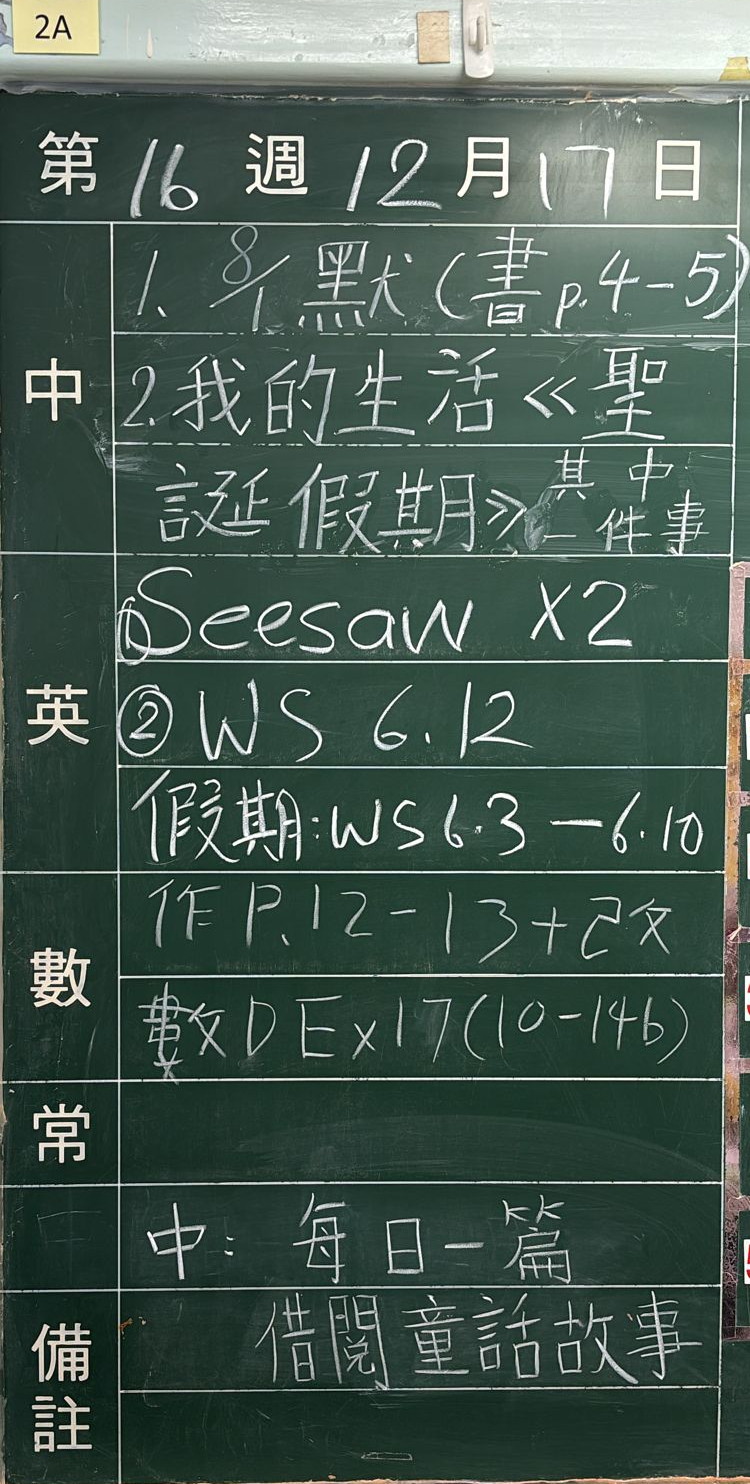 2A
第 16 週 12 月 17 日
中
1. 8/1 默(書p.4-5)
2.我的生活《聖
誕假期》其中一件事
英
①Seesaw x2
② WS 6.12
假期:WS6.3-6.10
數
作 P.12-13+改
數 D Ex17(10-14b)
常
中: 每日一篇
備註
借閱童話故事